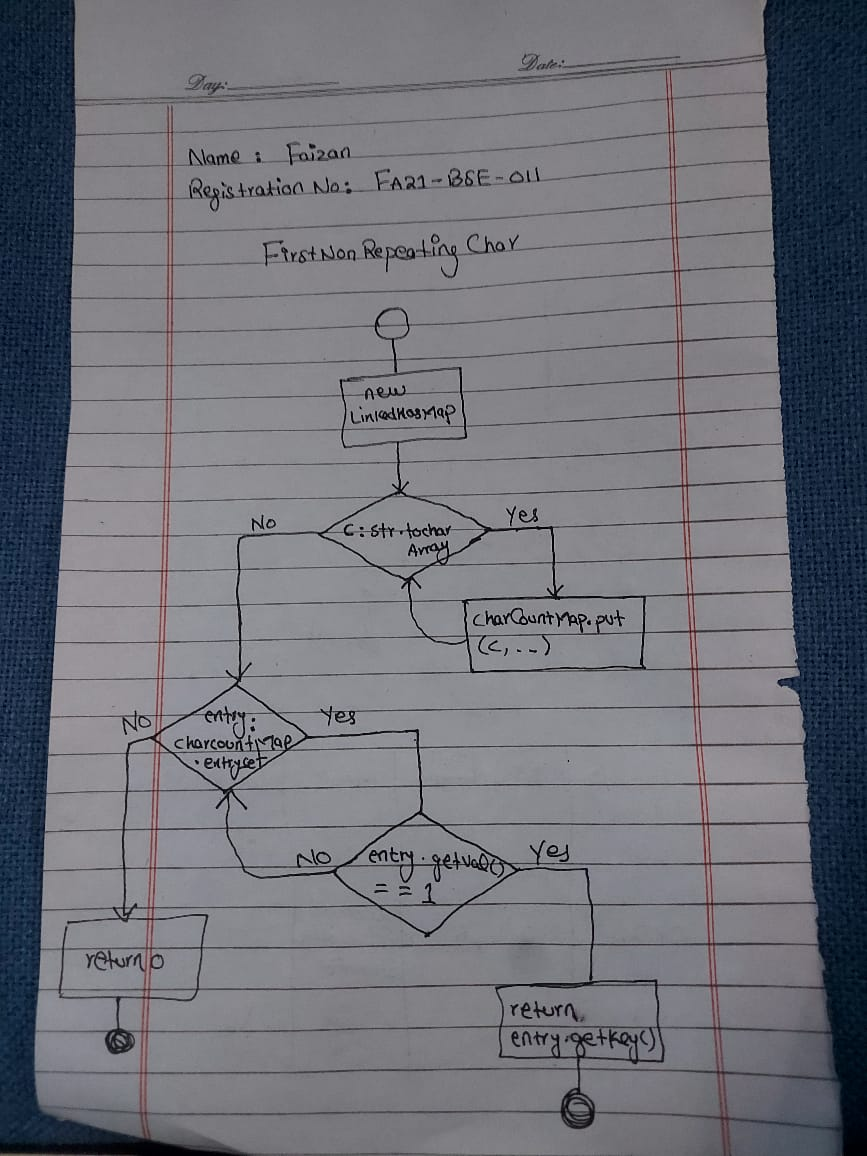 Day:
Date:
Name : Faizan
Registration No: FA21-BSE-011
First Non Repeating Char
new
LinkedHasMap
No
C: str.tochar
Array
Yes
charCountMap.put
(c, ..)
No
entry:
charcountMap
.entryset
Yes
No
entry.getval()
== 1
Yes
return 0
return
entry.getkey()